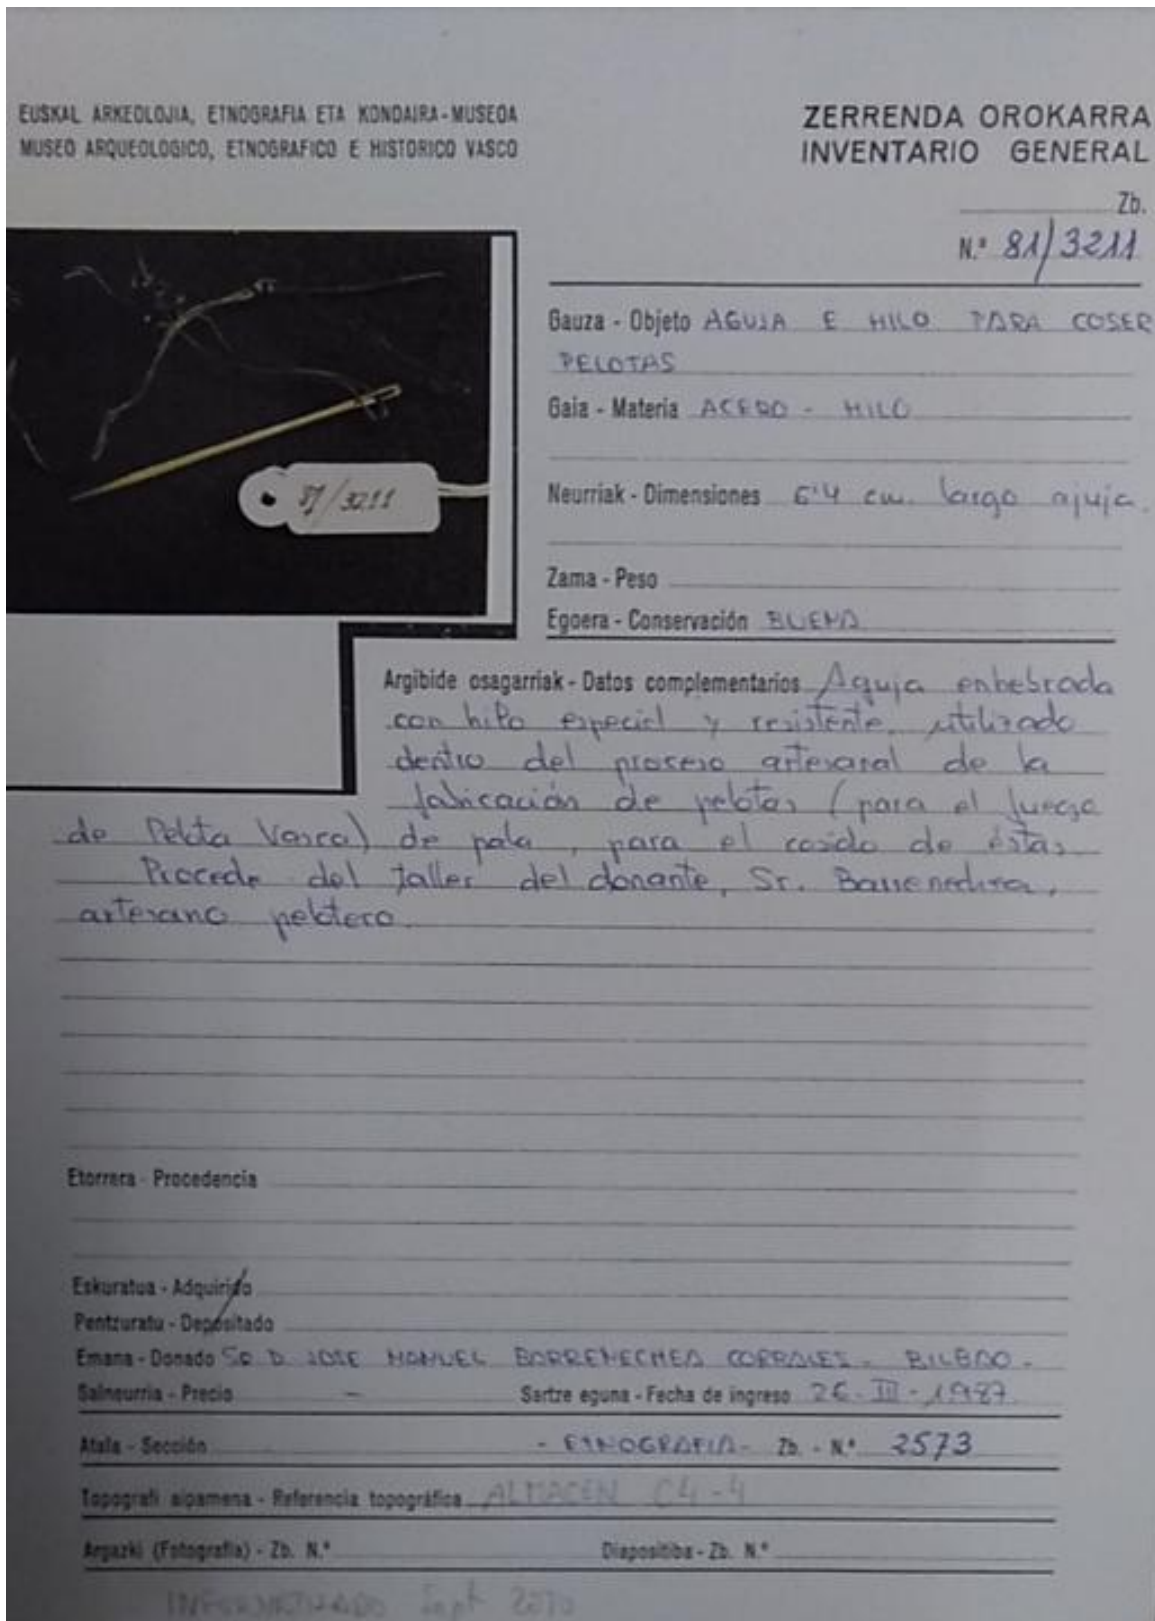 EUSKAL ARKEOLOJIA, ETNOGRAFIA ETA KONDAIRA-MUSEOA
MUSEO ARQUEOLOGICO, ETNOGRAFICO E HISTORICO VASCO
ZERRENDA OROKARRA
INVENTARIO GENERAL
Zb.
N.º 81/3211
Gauza - Objeto AGUJA E HILO PARA COSER
PELOTAS
Gaia - Materia ACERO - HILO
Neurriak - Dimensiones 6'4 cm. largo ajuja.
81/3211
Zama - Peso
Egoera - Conservación BUENA
Argibide osagarriak - Datos complementarios Aguja enhebrada
con hilo especial y resistente, utilizado
dentro del proceso artesanal de la
fabricación de pelotas (para el juego
de Pelota Vasca) de pala, para el cosido de éstas.
Procede del taller del donante, Sr. Barrenechea,
artesano pelotero.
Etorrera - Procedencia
Eskuratua - Adquirido
Pentzuratu - Depositado
Emana - Donado SR D. JOSE MANUEL BARRENECHEA CORRALES - BILBAO -
Salneurria - Precio -
Sartre eguna - Fecha de ingreso 26 - III - 1987
Atala - Sección - ETNOGRAFIA - Zb. - N.º 2573
Topografi aipamena - Referencia topográfica ALMACEN C4-4
Argazki (Fotografía) - Zb. N.º
Diapositiba - Zb. N.º
INFORMATIZADO Sept 2010